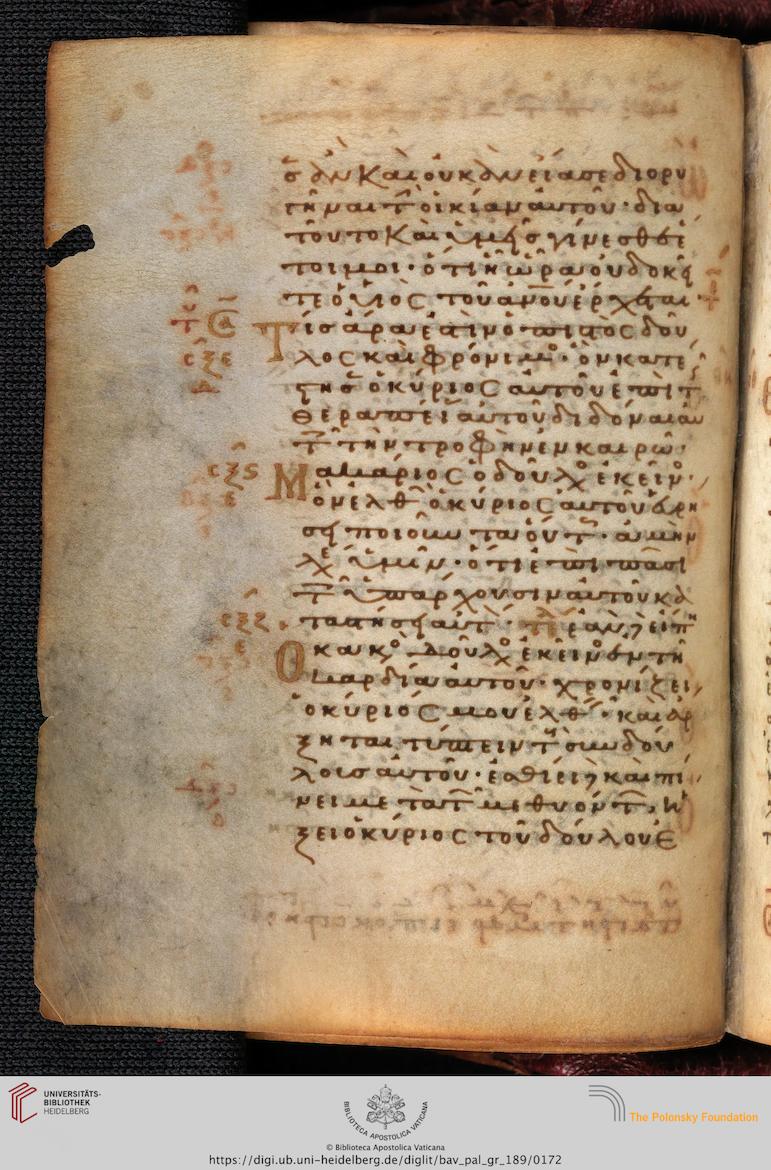 σ ἂν Καὶ οὐκ ἂν εἴασε διορυ
γῆναι τ οἰκίαν αὐτοῦ · δια
τοῦτο Καὶ ὑμεῖς γίνεσθε ἕ
τοιμοι · ὅτι ἡ ὥρα οὐ δοκεῖ
τε ὁ υἱος τοῦ ανου ἔρχεται
Τίς ἄρα ἐστὶν ὁ πιστος δου
λος καὶ φρόνιμο · ὃν κατέ
στησ ὁ κύριος αὐτοῦ ἐπὶ τ
θεραπείαν αὐτοῦ διδόναι αυ
τ τὴν τροφὴν ἐν καιρῶ ·
Μακάριος ὁ δοῦλο ἐκεῖν
ὃν ἐλθ ὁ κύριος αὐτοῦ εὑρή
σει ποιοῦν τα οὕτ · ἀμὴν
λε ὑμῖν · ὅτι ἐπὶ πᾶσι
τ ὑπάρχουσιν αὐτοῦ κα
ταστήσει αὐτ · ἐὰν δὲ εἴπ
Ο κακο δοῦλο ἐκεῖνοσ ἐν τῆ
καρδία αὐτοῦ · χρονίζει
ὁ κύριος μου ἐλθ · καὶ ἄρ
ξηται τύπτειν τ συνδού
λουσ αὐτοῦ · ἐσθίει δὲ καὶ πί
νει μετὰ τ μεθυόντ · ἥ
ξει ὁ κύριος τοῦ δούλου ἐ
UNIVERSITÄTS-
BIBLIOTHEK
HEIDELBERG
BIBLIOTECA APOSTOLICA VATICANA
The Polonsky Foundation
© Biblioteca Apostolica Vaticana
https://digi.ub.uni-heidelberg.de/diglit/bav_pal_gr_189/0172